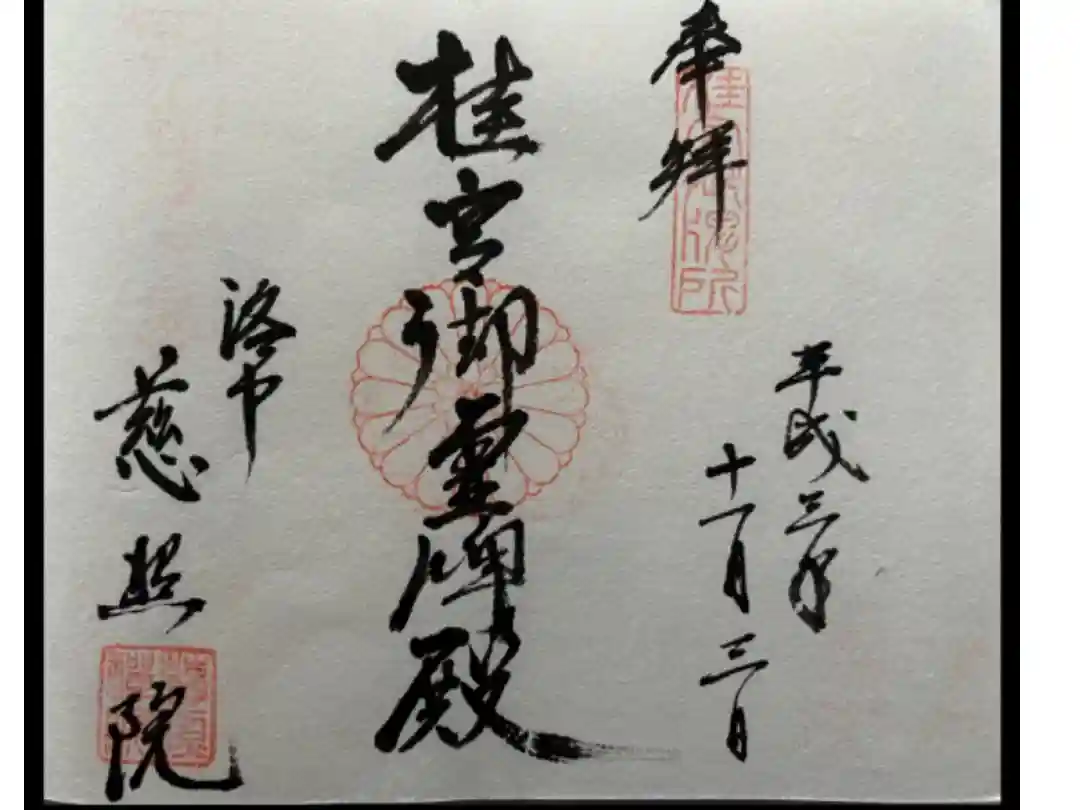 奉拝
平成三年
十一月三日
桂宮御霊牌殿
洛中
慈照院